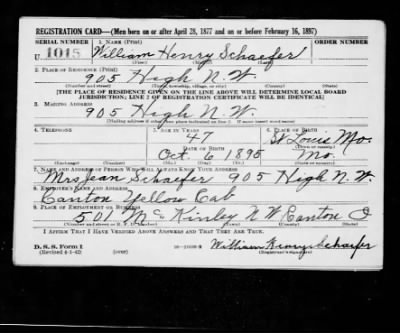 REGISTRATION CARD—(Men born on or after April 28, 1877 and on or before February 16, 1897)
SERIAL NUMBER 1. NAME (Print) ORDER NUMBER
U 1015 William Henry Schaefer
(First) (Middle) (Last)
2. PLACE OF RESIDENCE (Print)
905 High N. W.
(Number and street) (Town, township, village, or city) (County) (State)
[THE PLACE OF RESIDENCE GIVEN ON THE LINE ABOVE WILL DETERMINE LOCAL BOARD
JURISDICTION; LINE 2 OF REGISTRATION CERTIFICATE WILL BE IDENTICAL]
3. MAILING ADDRESS
905 High N. W.
[Mailing address if other than place indicated on line 2. If same insert word same]
4. TELEPHONE 5. AGE IN YEARS 6. PLACE OF BIRTH
47 St Louis Mo.
DATE OF BIRTH (Town or county)
Oct. 6 1895 Mo.
(Exchange) (Number) (Mo.) (Day) (Yr.) (State or country)
7. NAME AND ADDRESS OF PERSON WHO WILL ALWAYS KNOW YOUR ADDRESS
Mrs Jean Schaefer 905 High N. W
8. EMPLOYER'S NAME AND ADDRESS
Canton Yellow Cab
9. PLACE OF EMPLOYMENT OR BUSINESS
501 Mc Kinley N W Canton O
(Number and street or R. F. D. number) (Town) (County) (State)
I AFFIRM THAT I HAVE VERIFIED ABOVE ANSWERS AND THAT THEY ARE TRUE.
D. S. S. Form 1 William Henry Schaefer
(Revised 4-1-42) (over) (Registrant's signature)